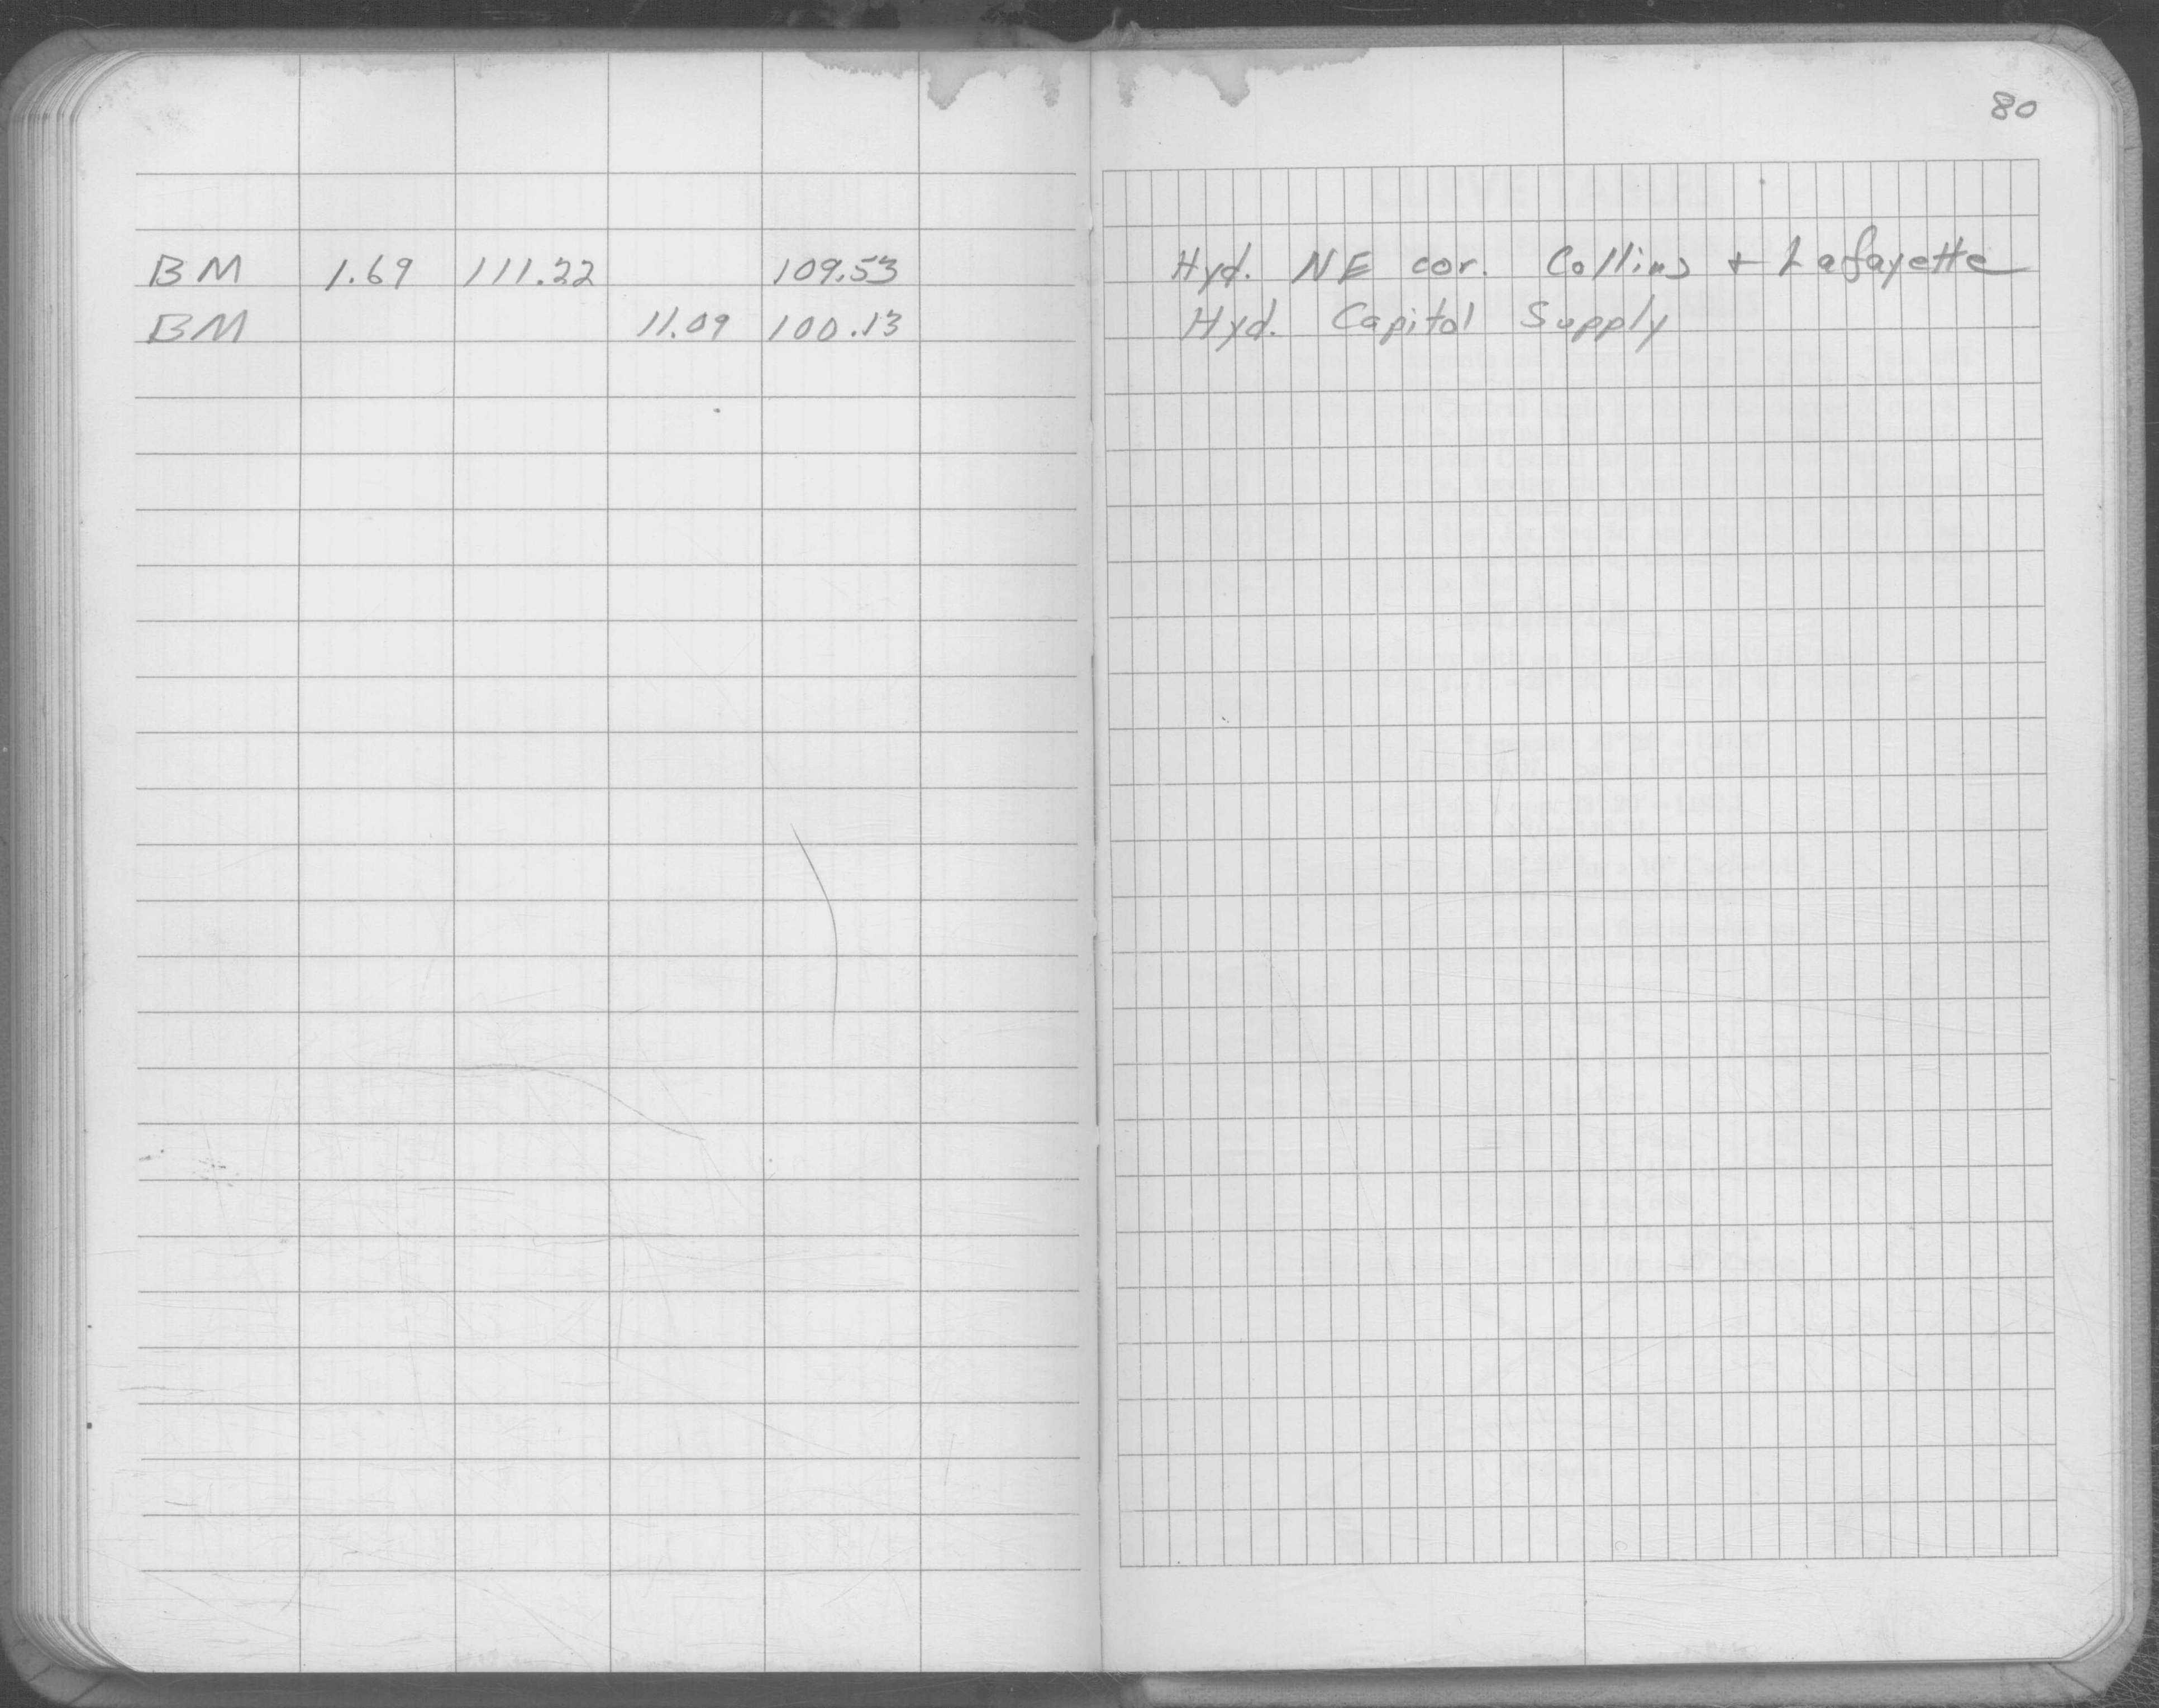 80
BM 1.69 111.22 109.53 Hyd. NE cor. Collins + Lafayette
BM 11.09 100.13 Hyd. Capitol Supply